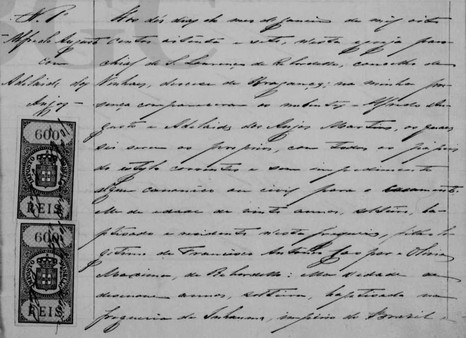 N.º 1
Alfredo Augusto
com
Adelaide dos
Anjos
Aos dez de mez de Janeiro de mil oito
centos oitenta e sete, nesta egreja paro
chial de S. Lourenço de Rebordello, concelho de
Vinhaes, diocese de Bragança, na minha pre
sença compareceram os nubentes Alfredo Au
gusto e Adelaide dos Anjos Martins, os quaes
sei serem os proprios, com todos os papeis
do estylo correntes e sem impedimento
algum canonico ou civil para o casamento
elle de edade de vinte annos, solteiro, ba
ptisado e residente nesta freguezia, filho le
gitimo de Francisco Antonio
de Rebordello: ella de edade de
dezenove annos, solteira, baptisada na
freguezia de Inhauma, imperio do Brazil
600
REIS
600
REIS